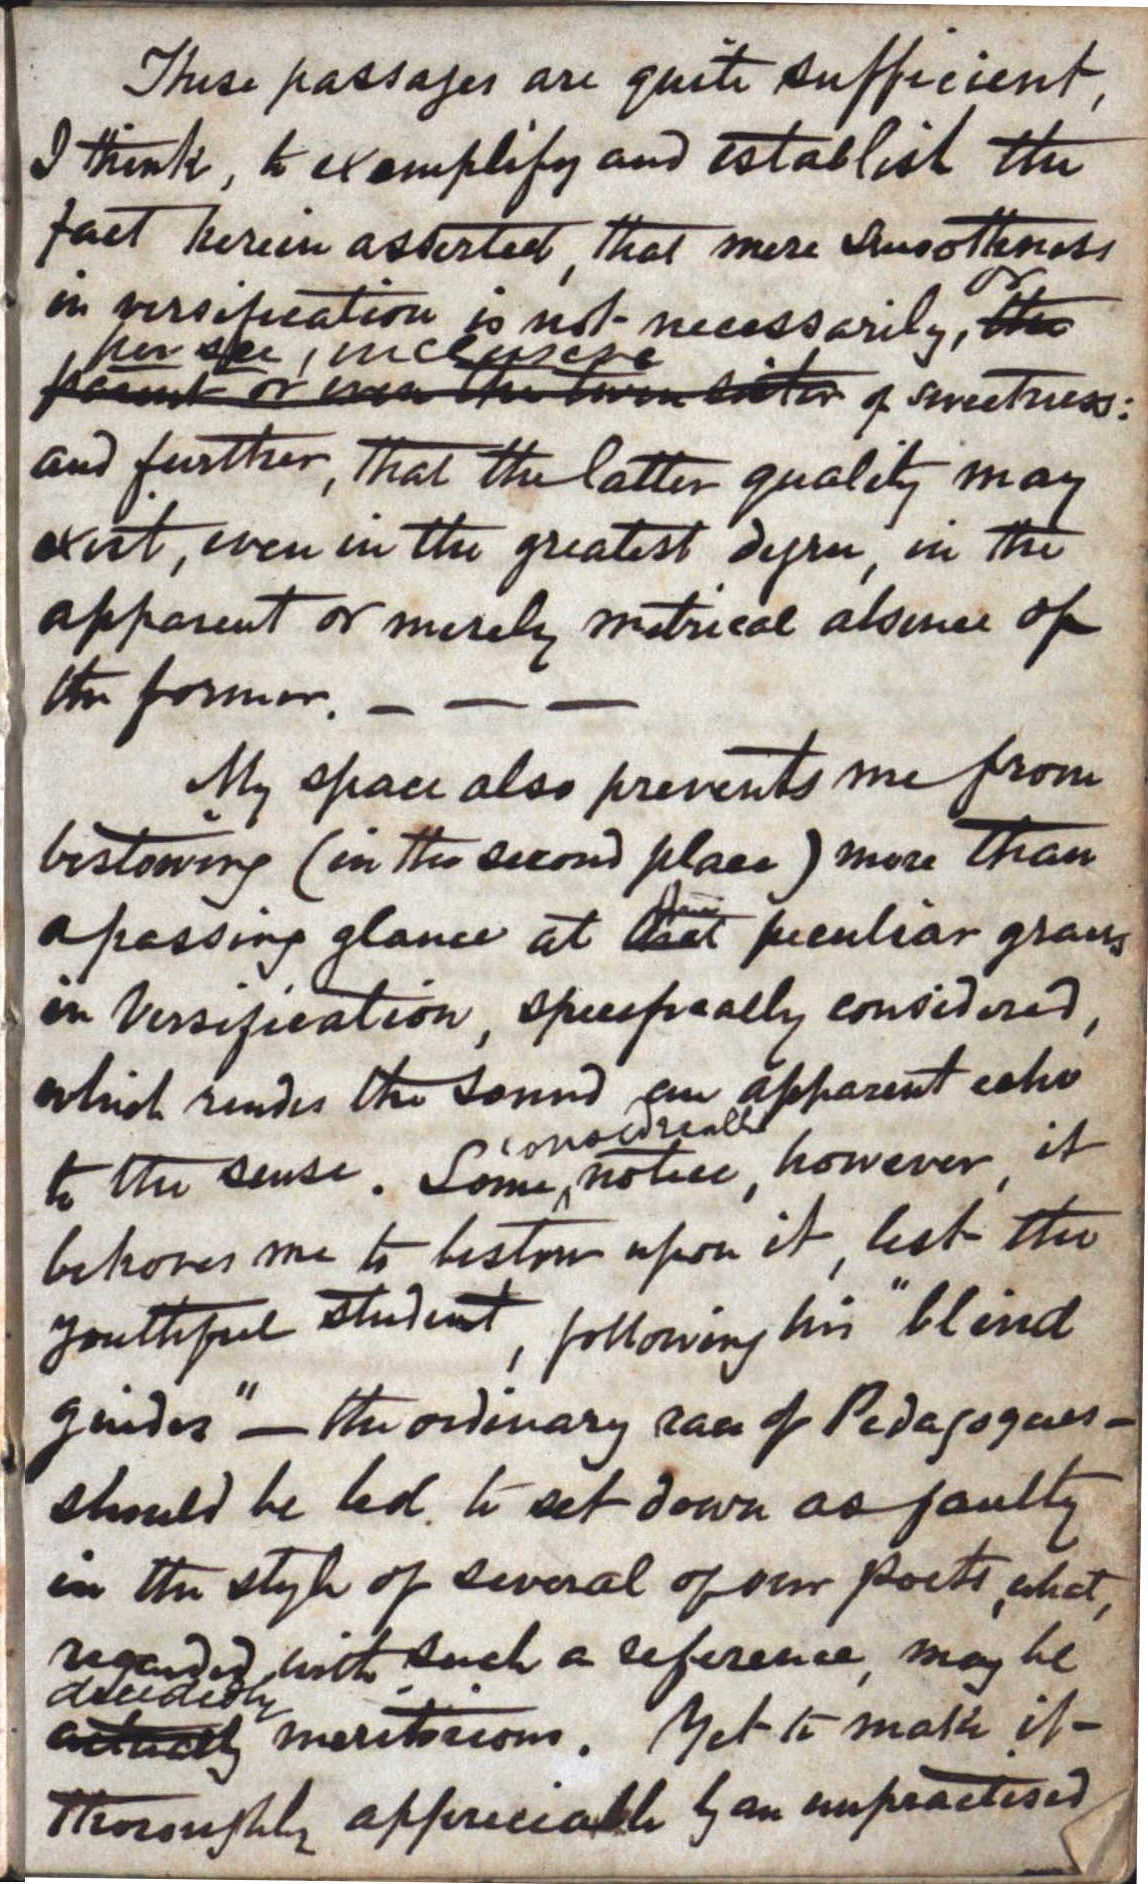 These passages are quite sufficient,
I think, to exemplify and establish the
fact herein asserted, that mere smoothness
in versification is not necessarily, or the
per see, inclusive
parent or even the twin sister of sweetness:
and further, that the latter quality may
exist, even in the greatest degree, in the
apparent or merely metrical absence of
the former. — — —
My space also prevents me from
bestowing (in the second place) more than
a passing glance at that peculiar graces
in Versification, specifically considered,
which rendes the sound an apparent echo
considerable
to the sense. Some notice, however, it
behoves me to bestow upon it, lest the
youthful student, following his "blind
guides" — the ordinary race of Pedagogues —
should be led to set down as faulty
in the style of several of our Poets, what,
regarded with such a reference, may be
decidedly
actually meritorious. Yet to make it
thoroughly appreciable by an unpractised